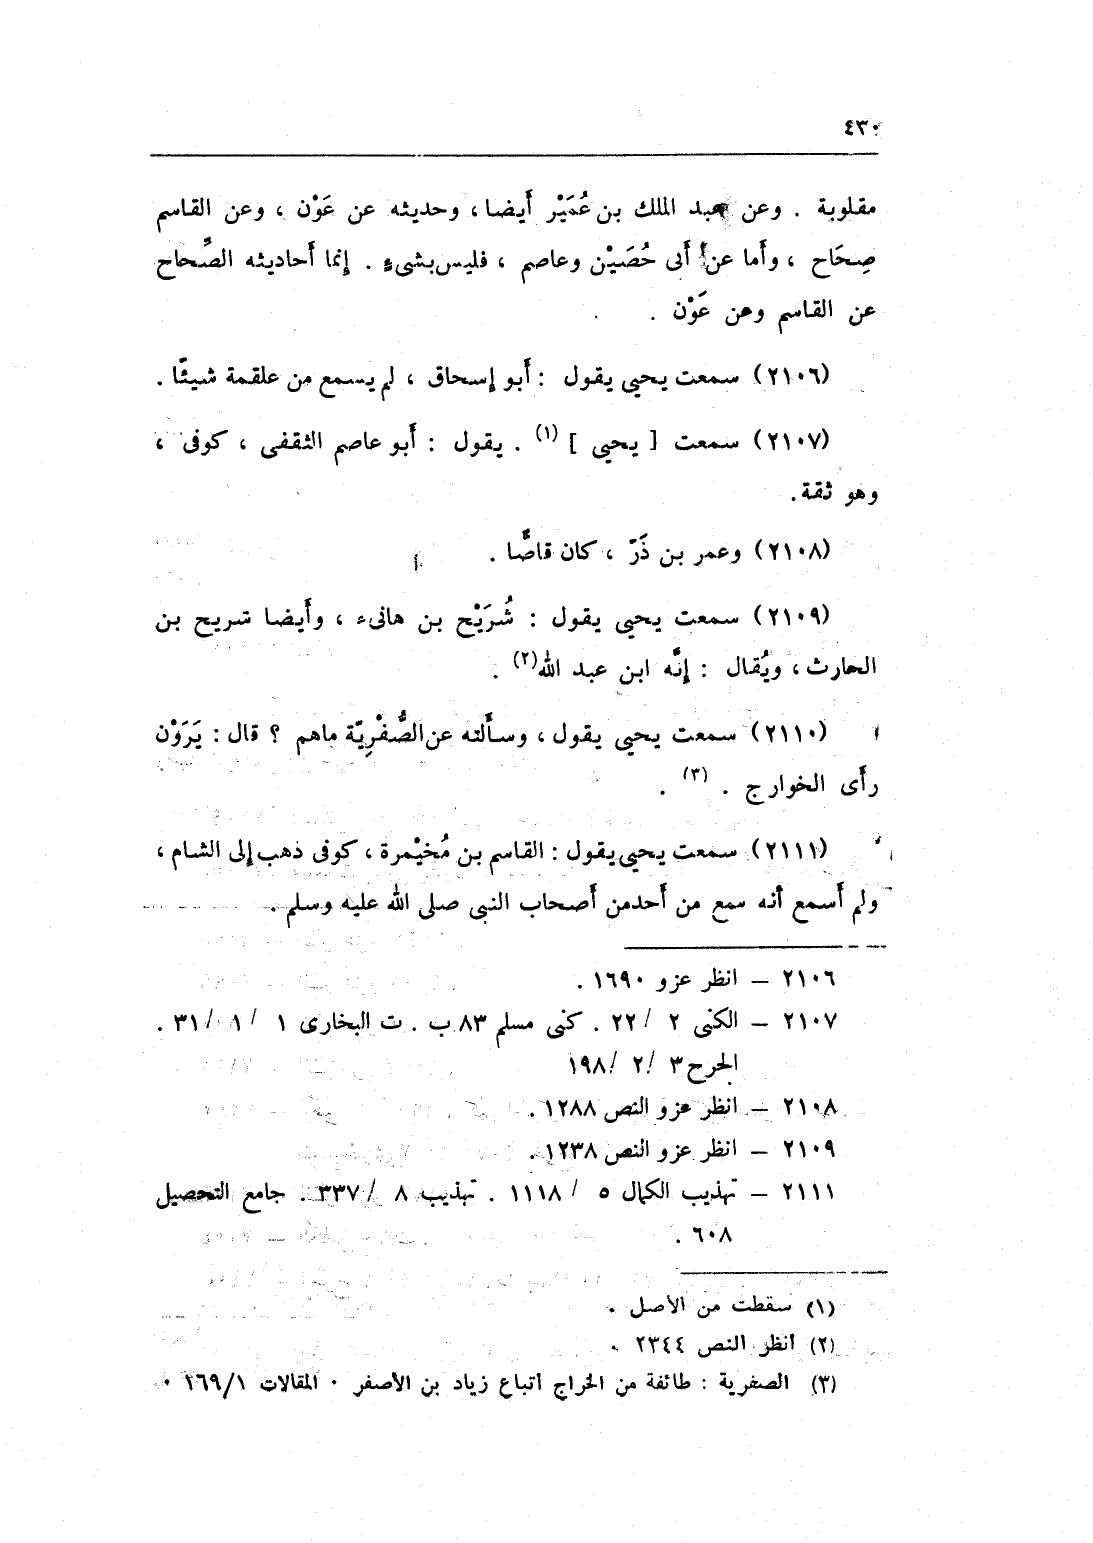 ٤٣٠
مقلوبة . وعن عبد الملك بن عُمَيْر أَيضا ، وحديثه عن عَوْن ، وعن القاسم
صِحَاح ، وأَما عن أَبى حُصَيْن وعاصم ، فليس بشىءٍ . إنما أَحاديثه الصِّحاح
عن القاسم وعن عَوْن .
(٢١٠٦) سمعت يحيى يقول : أَبو إسحاق ، لم يسمع من علقمة شيئًا .
(٢١٠٧) سمعت [ يحيى ] (١) . يقول : أَبو عاصم الثقفى ، كوفى ،
وهو ثقة .
(٢١٠٨) وعمر بن ذَرّ ، كان قاصًّا .
(٢١٠٩) سمعت يحيى يقول : شُرَيْح بن هانىء ، وأَيضا شريح بن
الحارث ، ويُقال : إنَّه ابن عبد الله(٢) .
(٢١١٠) سمعت يحيى يقول ، وسأَلته عن الصُّفْرِيّة ماهم ؟ قال : يَرَوْن
رأَى الخوارج . (٣) .
(٢١١١) سمعت يحيى يقول : القاسم بن مُخيْمرة ، كوفى ذهب إلى الشام ،
ولم أَسمع أَنه سمع من أَحدمن أَصحاب النبى صلى الله عليه وسلم .
٢١٠٦ – انظر عزو ١٦٩٠ .
٢١٠٧ – الكنى ٢ / ٢٢ . كنى مسلم ٨٣ ب . ت البخارى ١ / ١ / ٣١ .
الجرح ٣ / ٢ / ١٩٨
٢١٠٨ – انظر عزو النص ١٢٨٨ .
٢١٠٩ – انظر عزو النص ١٢٣٨ .
٢١١١ – تهذيب الكمال ٥ / ١١١٨ . تهذيب ٨ / ٣٣٧ . جامع التحصيل
٦٠٨ .
(١) سقطت من الأصل .
(٢) انظر النص ٢٣٤٤ .
(٣) الصفرية : طائفة من الخراج اتباع زياد بن الأصفر . المقالات ١٦٩/١ .